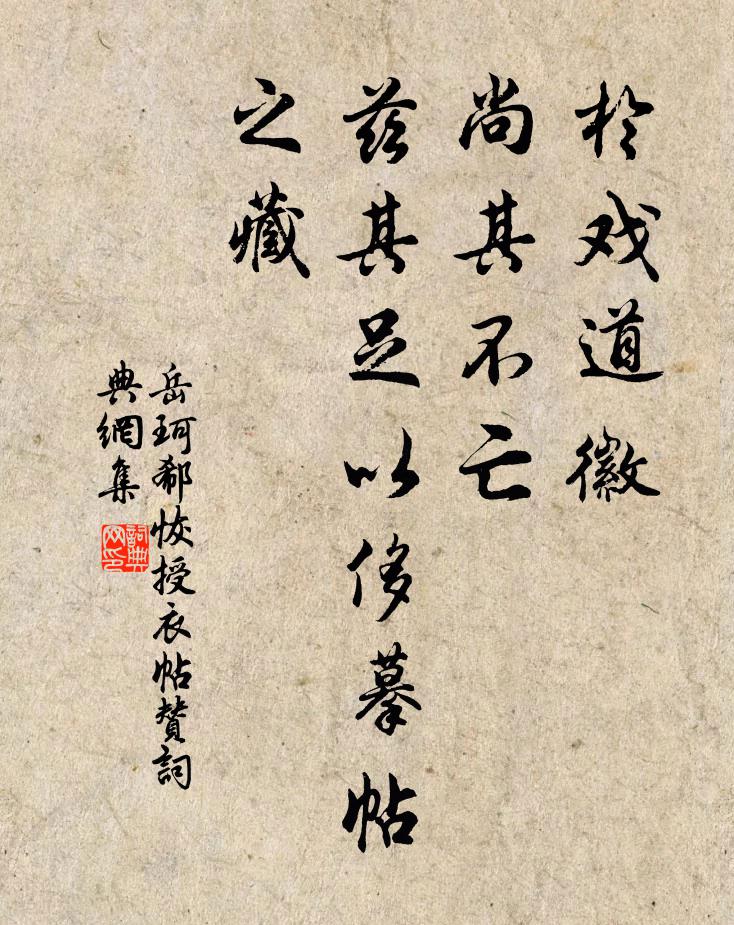 於戏道徽
尚其不亡
兹其足以侈摹帖
之藏
岳珂郗恢授衣帖赞詞
典網集
詞典网印